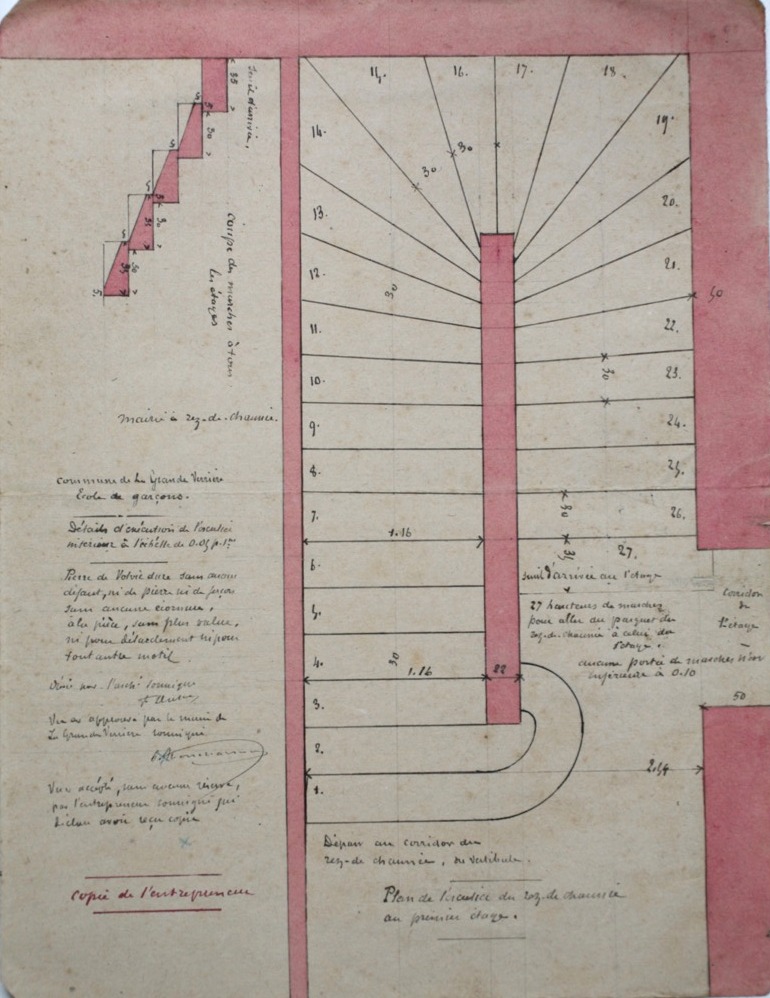 35
Seuil d'arrivée,
5
30
5
30
5
35
30
5
35
30
5.
Coupe des marches à tous
les étages
mairie à rez-de-chaussée.
Commune de La Grande Verrière
École de garçons.
Détails d'exécution de l'escalier
intérieur à l'échelle de 0.05 p. 1m
Pierre de Volvic dure sans aucun
défaut, ni de pierre ni de façon
sans aucune écornure,
à la pièce, sans plus value,
ni pour détachement ni pour
tout autre motif.
Vu et approuvé par le maire de
La Grande Verrière soussigné
Vu et accepté, sans aucune réserve,
par l'entrepreneur soussigné qui
déclare avoir reçu copie
Copie de l'entrepreneur
15.
16.
17.
18.
19.
14.
30
30
13.
20.
12.
30
21.
50
11.
22.
10.
30
23.
9.
24.
8.
25.
7.
30
26.
1.16
35
27.
6.
seuil d'arrivée au 1er étage
5.
27 hauteurs de marches
pour aller du parquet du
rez-de-chaussée à celui du
1er étage.
aucune portée de marches n'étant
inférieure à 0.10
corridor
du
1er étage
4.
30
1.16
22
3.
50
2.
2.54
1.
Départ au corridor du
rez-de chaussée, ou vestibule.
Plan de l'escalier du rez-de chaussée
au premier étage.